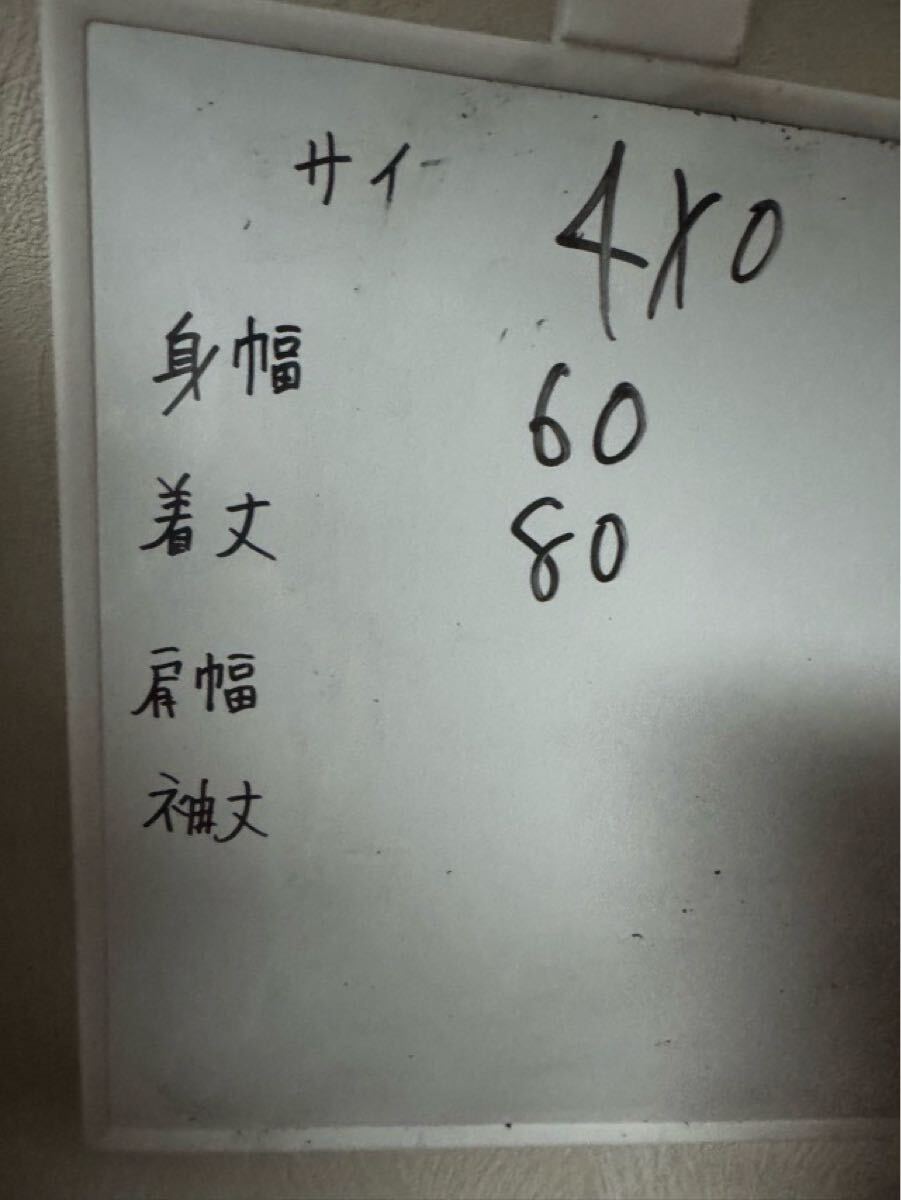 サイー 4X0
身幅 60
着丈 80
肩幅
袖丈